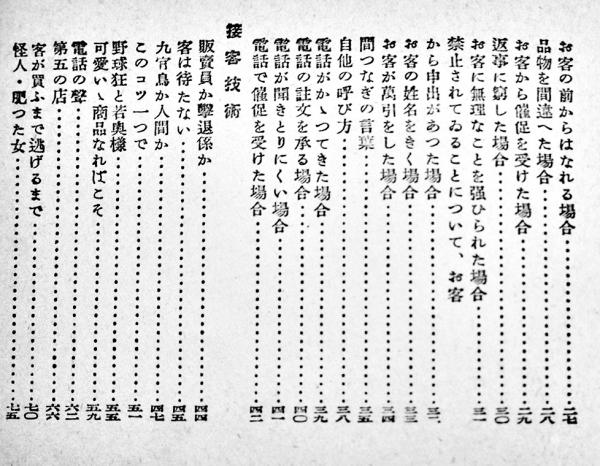 お客の前からはなれる場合……二七
品物を間違へた場合……二八
お客から催促を受けた場合……二九
返事に窮した場合……三〇
お客に無理なことを强ひられた場合……三一
禁止されてゐることについて、お客
から申出があつた場合……三二
お客の姓名をきく場合……三三
お客が萬引をした場合……三四
間つなぎの言葉……三五
自他の呼び方……三八
電話がかゝつてきた場合……三九
電話の註文を承る場合……四〇
電話が聞きとりにくい場合……四一
電話で催促を受けた場合……四二
接客技術
販賣員か擊退係か……四四
客は待たない……四五
九官鳥か人間か……四七
このコツ一つで……五一
野球狂と若奥樣……五五
可愛いゝ商品なればこそ……五九
電話の聲……六二
第五の店……六六
客が買ふまで逃げるまで……七〇
怪人・肥つた女……七五